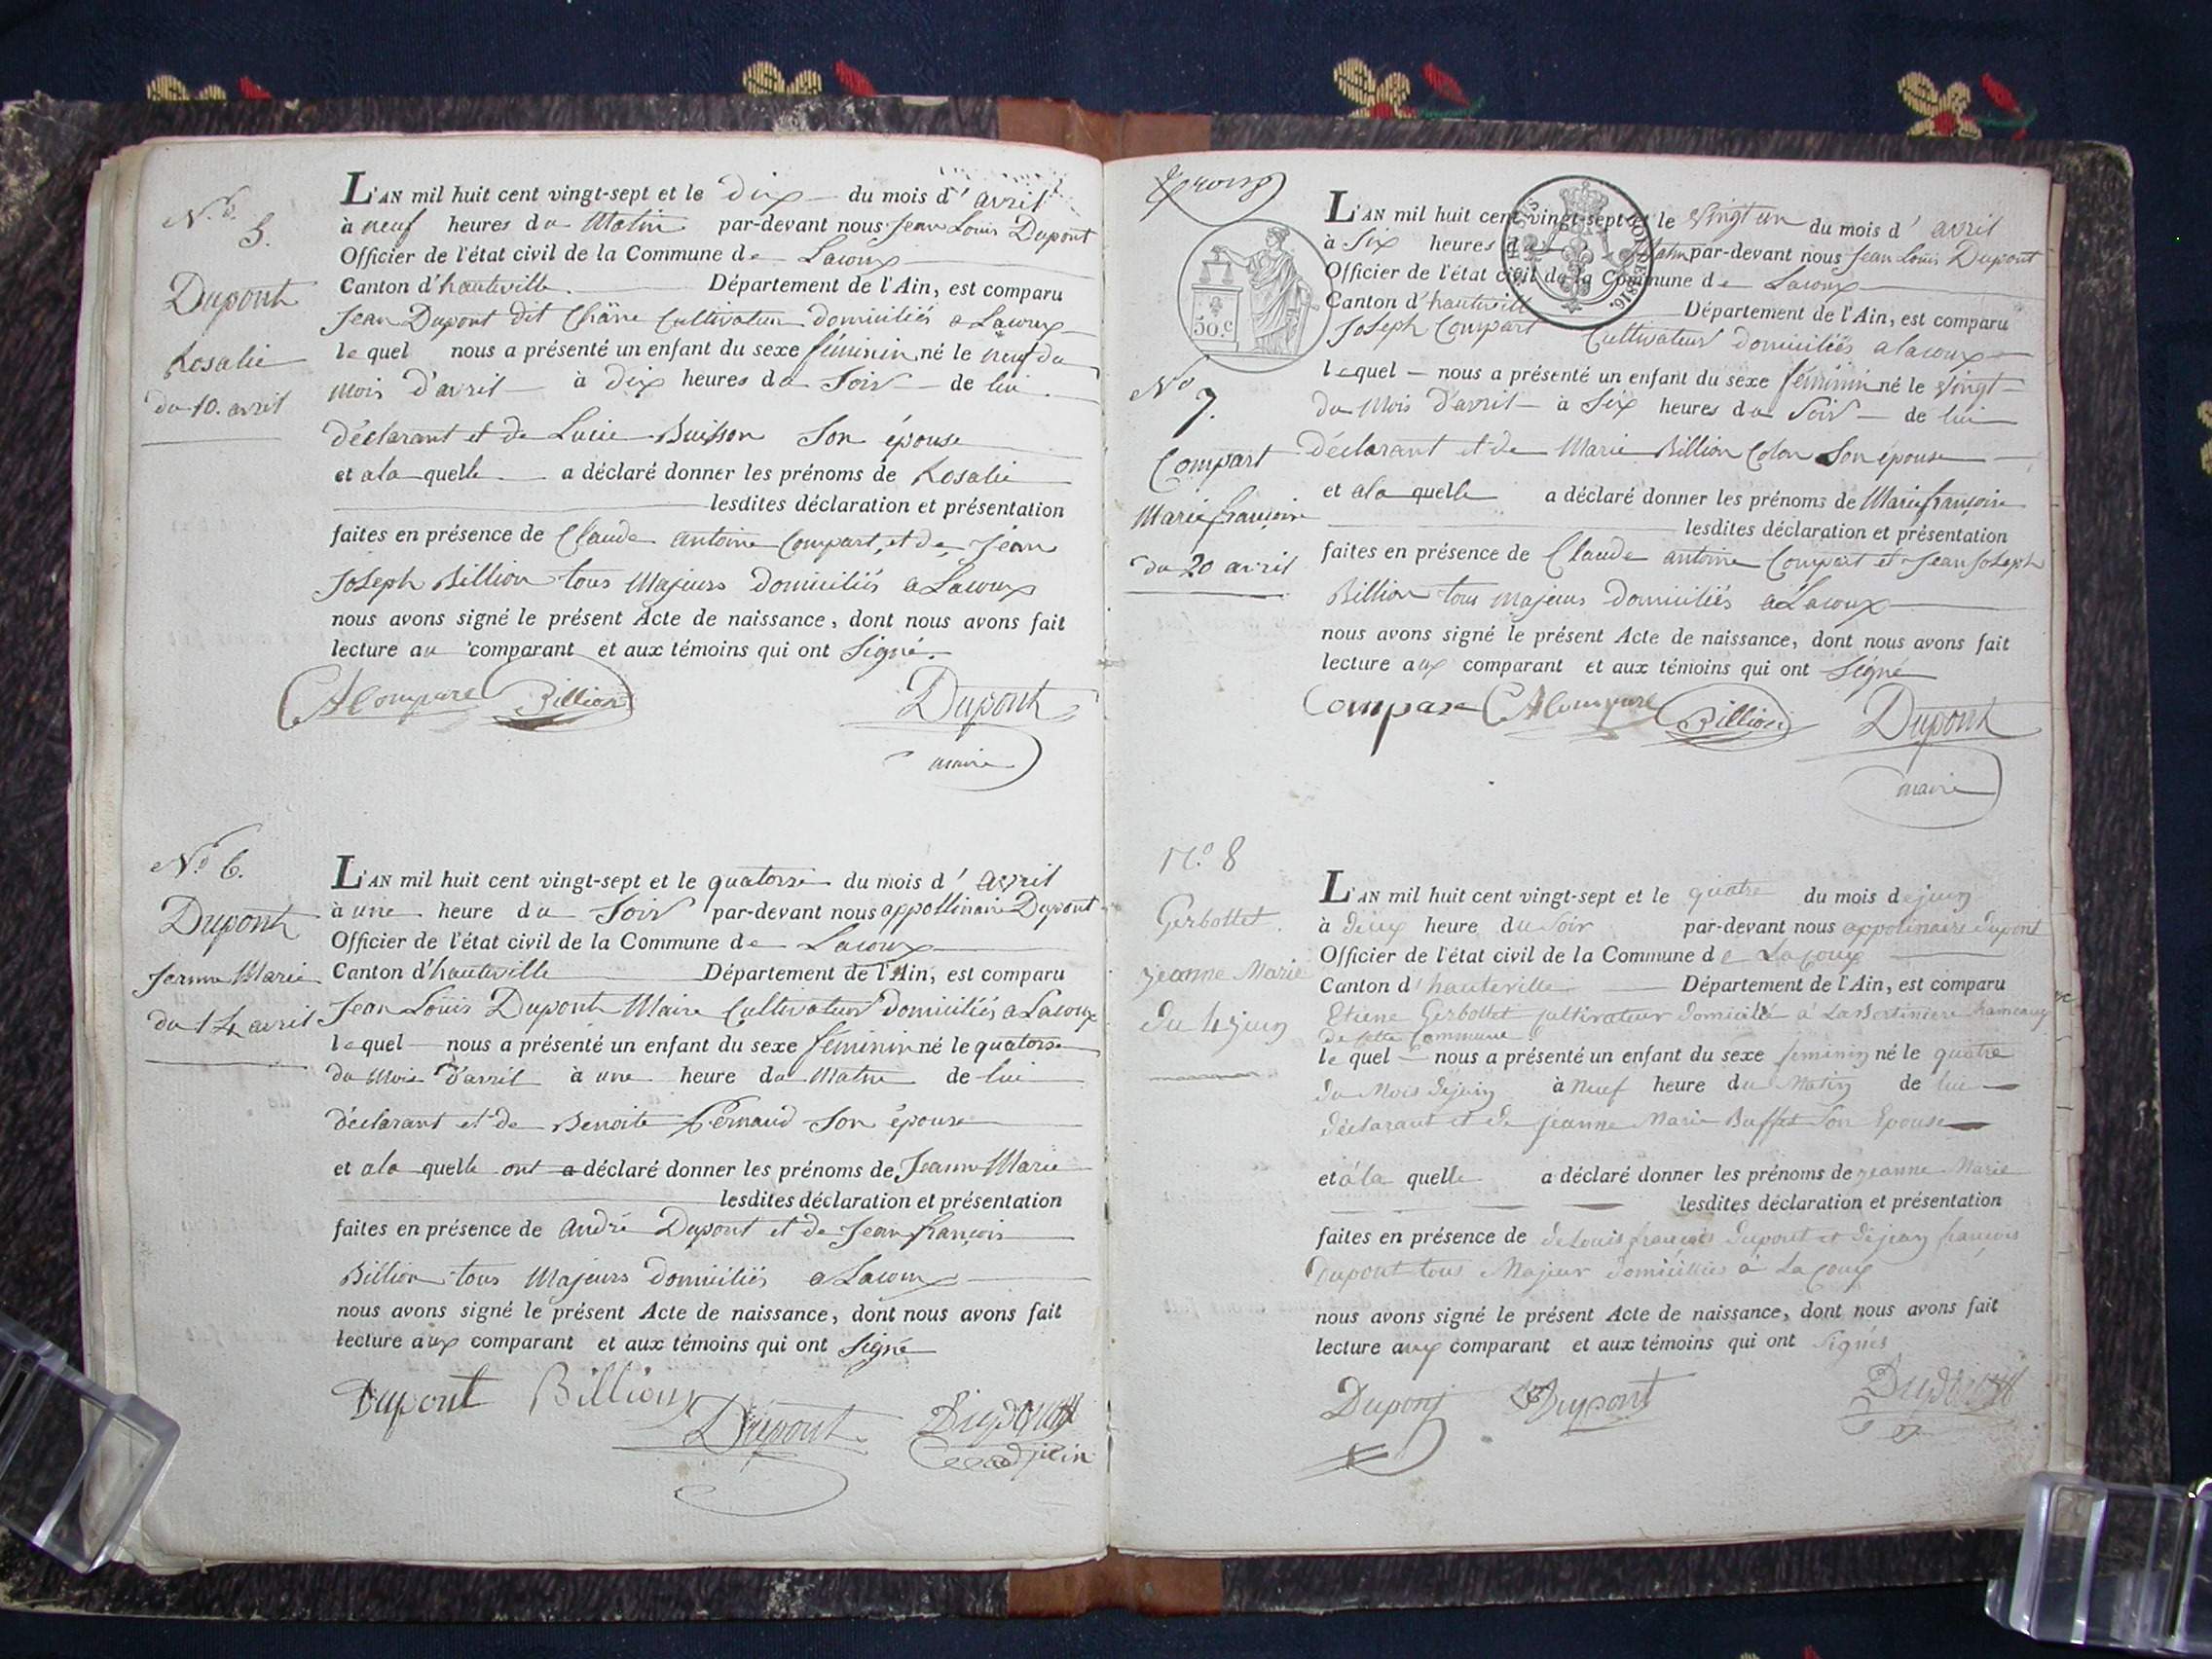 N.o 5.
Dupont
Rosalie
du 10. avril
L'AN mil huit cent vingt-sept et le dix du mois d'avril
à neuf heures du Matin par-devant nous Jean Louis Dupont
Officier de l'état civil de la Commune de Lacoux
Canton d'hauteville Département de l'Ain, est comparu
Jean Dupont dit Cultivateur domiciliés a Lacoux
lequel nous a présenté un enfant du sexe féminin né le neuf du
mois d'avril à dix heures du Soir de lui
déclarant et de Lucie Buisson Son épouse
et ala quelle a déclaré donner les prénoms de Rosalie
lesdites déclaration et présentation
faites en présence de Claude antoine Compart, et de Jean
Joseph Billion tous Majeurs domiciliés a Lacoux
nous avons signé le présent Acte de naissance, dont nous avons fait
lecture au comparant et aux témoins qui ont Signé.
CA Compare Billion Dupont
maire
No 6.
Dupont
Jeanne Marie
du 14 avril
L'AN mil huit cent vingt-sept et le quatorze du mois d'avril
à une heure du Soir par-devant nous appollinaire Dupont
Officier de l'état civil de la Commune de Lacoux
Canton d'hauteville Département de l'Ain, est comparu
Jean Louis Dupont Maire Cultivateur domiciliés a Lacoux
lequel nous a présenté un enfant du sexe féminin né le quatorze
du Mois d'avril à une heure du Matin de lui
déclarant et de Benoite Pernaud Son épouse
et ala quelle ont a déclaré donner les prénoms de Jeanne Marie
lesdites déclaration et présentation
faites en présence de andré Dupont et de Jean françois
Billion tous Majeurs domiciliés a Lacoux
nous avons signé le présent Acte de naissance, dont nous avons fait
lecture aux comparant et aux témoins qui ont Signé
Dupont Billioux Dupont Dupont
adjoin
50.c
1816.
No 7.
Compart
Marie françoise
du 20 avril
L'AN mil huit cent vingt-sept et le vingt un du mois d'avril
à Six heures du Matin par-devant nous Jean Louis Dupont
Officier de l'état civil de la Commune de Lacoux
Canton d'hauteville Département de l'Ain, est comparu
Joseph Compart Cultivateur domiciliés a lacoux
lequel nous a présenté un enfant du sexe féminin né le vingt
du Mois d'avril à Six heures du Soir de lui
déclarant et de Marie Billion Colon Son épouse
et ala quelle a déclaré donner les prénoms de Marie françoise
lesdites déclaration et présentation
faites en présence de Claude antoine Compart et Jean Joseph
Billion tous majeurs domiciliés a Lacoux
nous avons signé le présent Acte de naissance, dont nous avons fait
lecture aux comparant et aux témoins qui ont Signé
Compare CA Compare Billion Dupont
maire
N.o 8
Gerbollet.
jeanne Marie
du 4 juin
L'AN mil huit cent vingt-sept et le quatre du mois de juin
à deux heure du Soir par-devant nous appolinaire dupont
Officier de l'état civil de la Commune de La Coux
Canton d'hauteville Département de l'Ain, est comparu
Etiene Gerbollet cultivateur domicilié à La Bertiniere hameaux
de cette Commune
lequel nous a présenté un enfant du sexe feminin né le quatre
du Mois de juin à neuf heure du Matin de lui
déclarant et de jeanne Marie Buffet Son Epouse
et à la quelle a déclaré donner les prénoms de jeanne Marie
lesdites déclaration et présentation
faites en présence de de Louis françois dupont et de jean françois
Dupont tous Majeur domiciliés à La Coux
nous avons signé le présent Acte de naissance, dont nous avons fait
lecture aux comparant et aux témoins qui ont Signés
Dupont Dupont Dupont